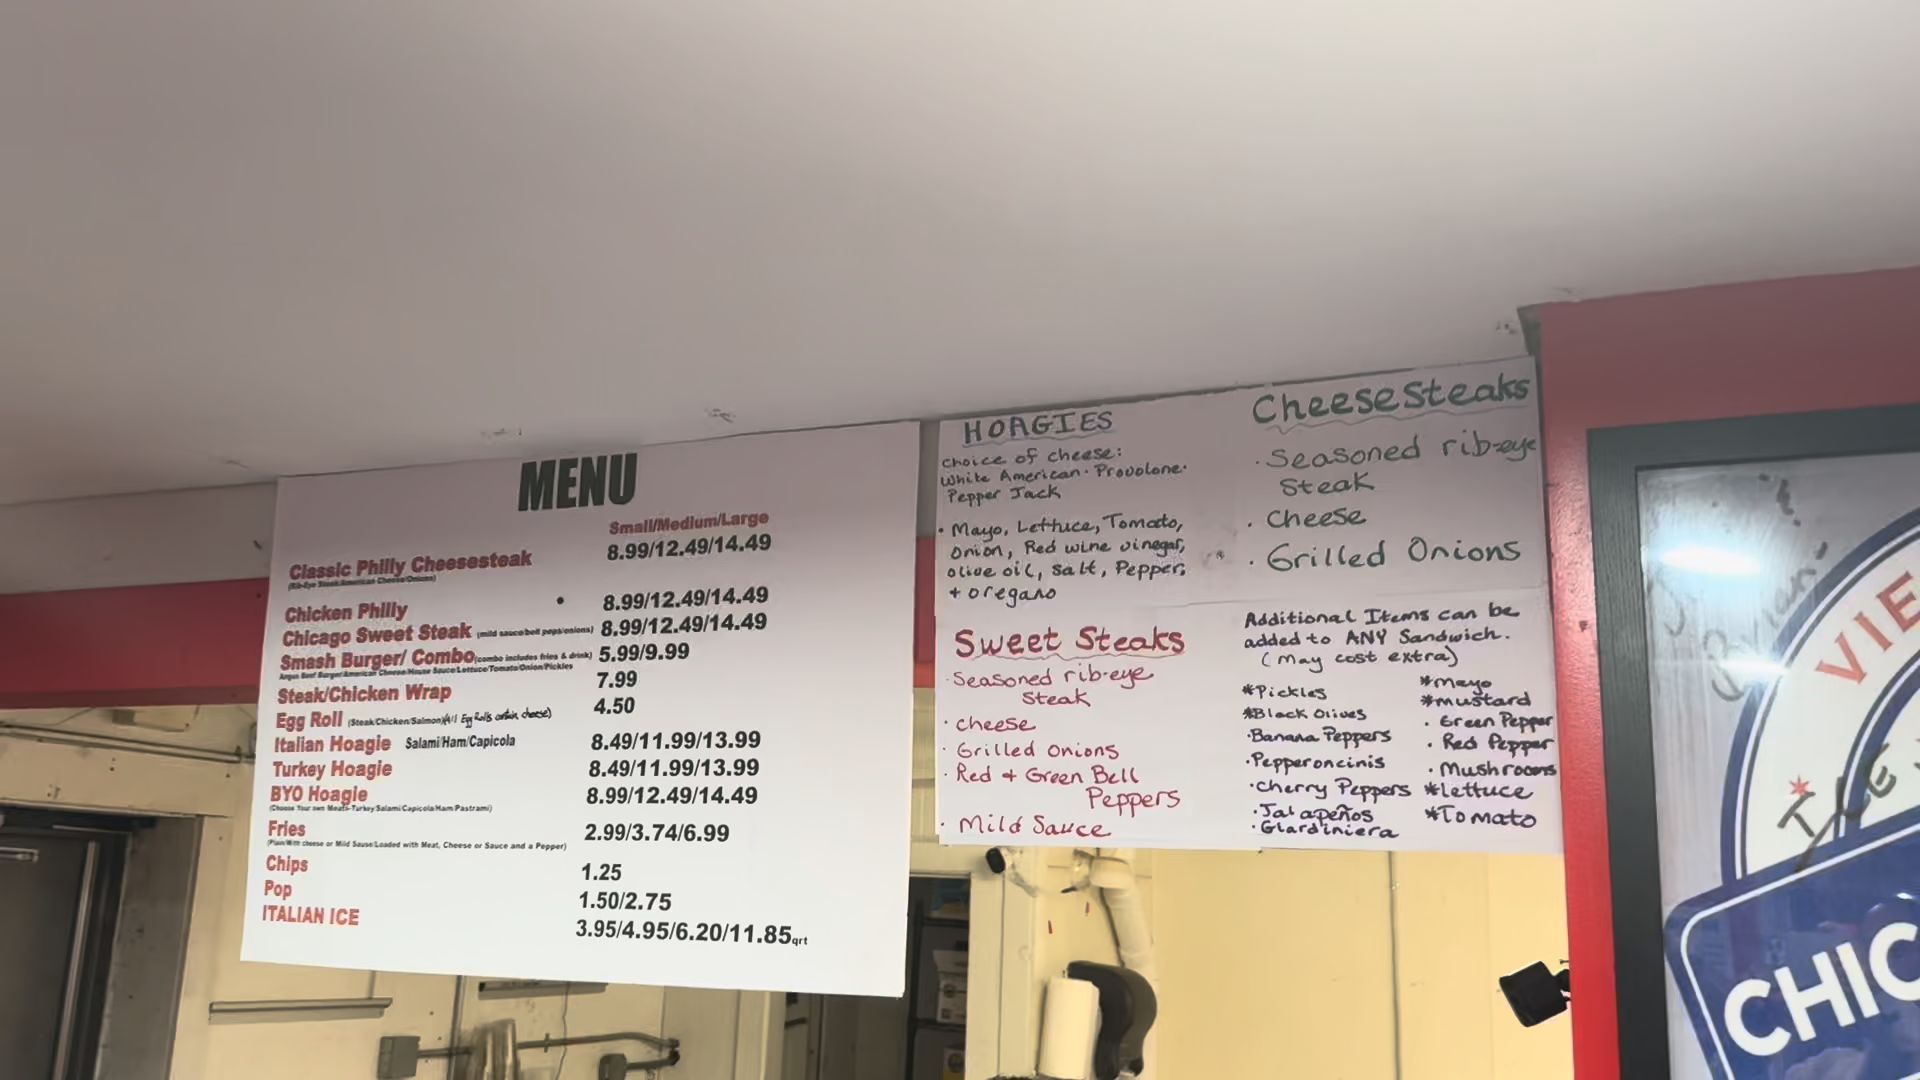 MENU
Small/Medium/Large
Classic Philly Cheesesteak 8.99/12.49/14.49
(Rib-Eye Steak/American Cheese/Onions)
Chicken Philly 8.99/12.49/14.49
Chicago Sweet Steak (mild sauce/bell peps/onions) 8.99/12.49/14.49
Smash Burger/ Combo (combo includes fries & drink) 5.99/9.99
Angus Beef Burger/American Cheese/House Sauce/Lettuce/Tomato/Onion/Pickles
Steak/Chicken Wrap 7.99
Egg Roll (Steak/Chicken/Salmon) (All Egg Rolls contain cheese) 4.50
Italian Hoagie Salami/Ham/Capicola 8.49/11.99/13.99
Turkey Hoagie 8.49/11.99/13.99
BYO Hoagie 8.99/12.49/14.49
(Choose Your own Meats-Turkey/Salami/Capicola/Ham/Pastrami)
Fries 2.99/3.74/6.99
(Plain/With cheese or Mild Sauce/Loaded with Meat, Cheese or Sauce and a Pepper)
Chips 1.25
Pop 1.50/2.75
ITALIAN ICE 3.95/4.95/6.20/11.85qrt
HOAGIES
choice of cheese:
White American · Provolone ·
Pepper Jack
· Mayo, Lettuce, Tomato,
Onion, Red wine vinegar,
olive oil, salt, Pepper,
+ oregano
Sweet Steaks
· Seasoned rib-eye
Steak
· cheese
· Grilled onions
· Red + Green Bell
Peppers
· Mild Sauce
CheeseSteaks
· Seasoned rib-eye
Steak
· Cheese
· Grilled Onions
Additional Items can be
added to ANY Sandwich.
(may cost extra)
*Pickles
*Black Olives
·Banana Peppers
·Pepperoncinis
·Cherry Peppers
·Jalapeños
·Giardiniera
*Mayo
*mustard
· Green Pepper
· Red Pepper
· Mushrooms
*lettuce
*Tomato
VIE
CHIC